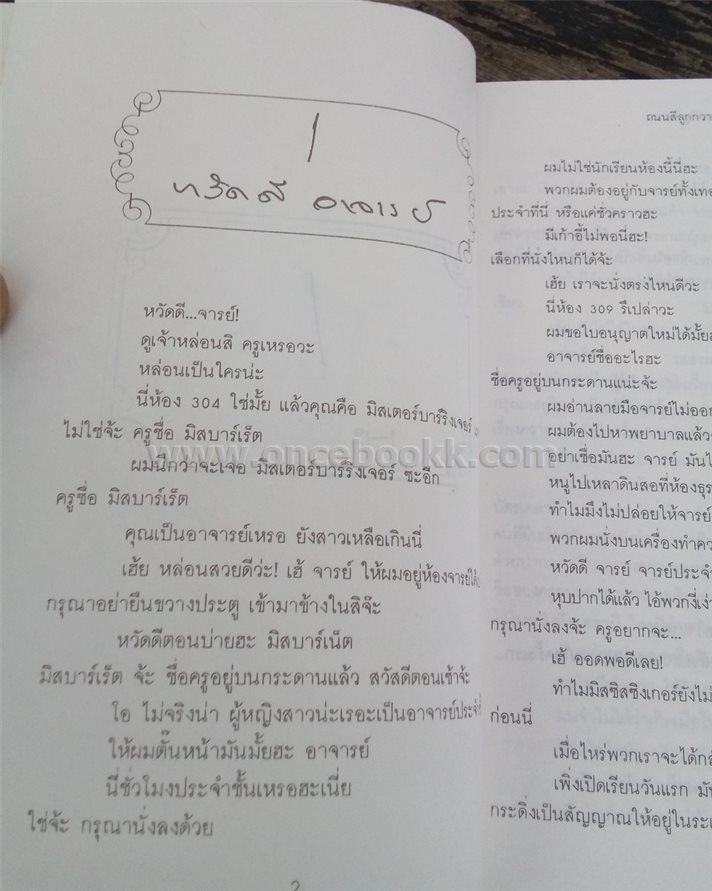 1
หวัดดี อาจารย์
หวัดดี...จารย์!
ดูเจ้าหล่อนสิ ครูเหรอวะ
หล่อนเป็นใครน่ะ
นี่ห้อง 304 ใช่มั้ย แล้วคุณคือ มิสเตอร์บาร์ริงเจอร์
ไม่ใช่จ้ะ ครูชื่อ มิสบาร์เร็ต
ผมนึกว่าจะเจอ มิสเตอร์บาร์ริงเจอร์ ซะอีก
ครูชื่อ มิสบาร์เร็ต
คุณเป็นอาจารย์เหรอ ยังสาวเหลือเกินนี่
เฮ้ย หล่อนสวยดีว่ะ! เฮ้ จารย์ ให้ผมอยู่ห้องจารย์
กรุณาอย่ายืนขวางประตู เข้ามาข้างในสิจ๊ะ
หวัดดีตอนบ่ายฮะ มิสบาร์เน็ต
มิสบาร์เร็ต จ้ะ ชื่อครูอยู่บนกระดานแล้ว สวัสดีตอนเช้าจ้ะ
โอ ไม่จริงน่า ผู้หญิงสาวน่ะเรอะเป็นอาจารย์ประจำ
ให้ผมตั๊นหน้ามันมั้ยฮะ อาจารย์
นี่ชั่วโมงประจำชั้นเหรอฮะเนี่ย
ใช่จ้ะ กรุณานั่งลงด้วย
2
ถนนสีลูกกวา
ผมไม่ใช่นักเรียนห้องนี้นี่ฮะ
พวกผมต้องอยู่กับจารย์ทั้งเทอ
ประจำที่นี่ หรือแค่ชั่วคราวฮะ
มีเก้าอี้ไม่พอนี่ฮะ!
เลือกที่นั่งไหนก็ได้จ้ะ
เฮ้ย เราจะนั่งตรงไหนดีวะ
นี่ห้อง 309 รึเปล่าวะ
ผมขอใบอนุญาตใหม่ได้มั้ย
อาจารย์ชื่ออะไรฮะ
ชื่อครูอยู่บนกระดานแน่ะจ้ะ
ผมอ่านลายมือจารย์ไม่ออก
ผมต้องไปหาพยาบาลแล้ว
อย่าเชื่อมันฮะ จารย์ มันไ
หนูไปเหลาดินสอที่ห้องธุร
ทำไมมึงไม่ปล่อยให้จารย์
พวกผมนั่งบนเครื่องทำคว
หวัดดี จารย์ จารย์ประจำ
หุบปากได้แล้ว ไอ้พวกงี่เง่า
กรุณานั่งลงจ้ะ ครูอยากจะ...
เฮ้ ออดพอดีเลย!
ทำไมมิสซิสซิงเกอร์ยังไม่
ก่อนนี่
เมื่อไหร่พวกเราจะได้กล
เพิ่งเปิดเรียนวันแรก มั
กระดิ่งเป็นสัญญาณให้อยู่ในระเ
www.oncebookk.com